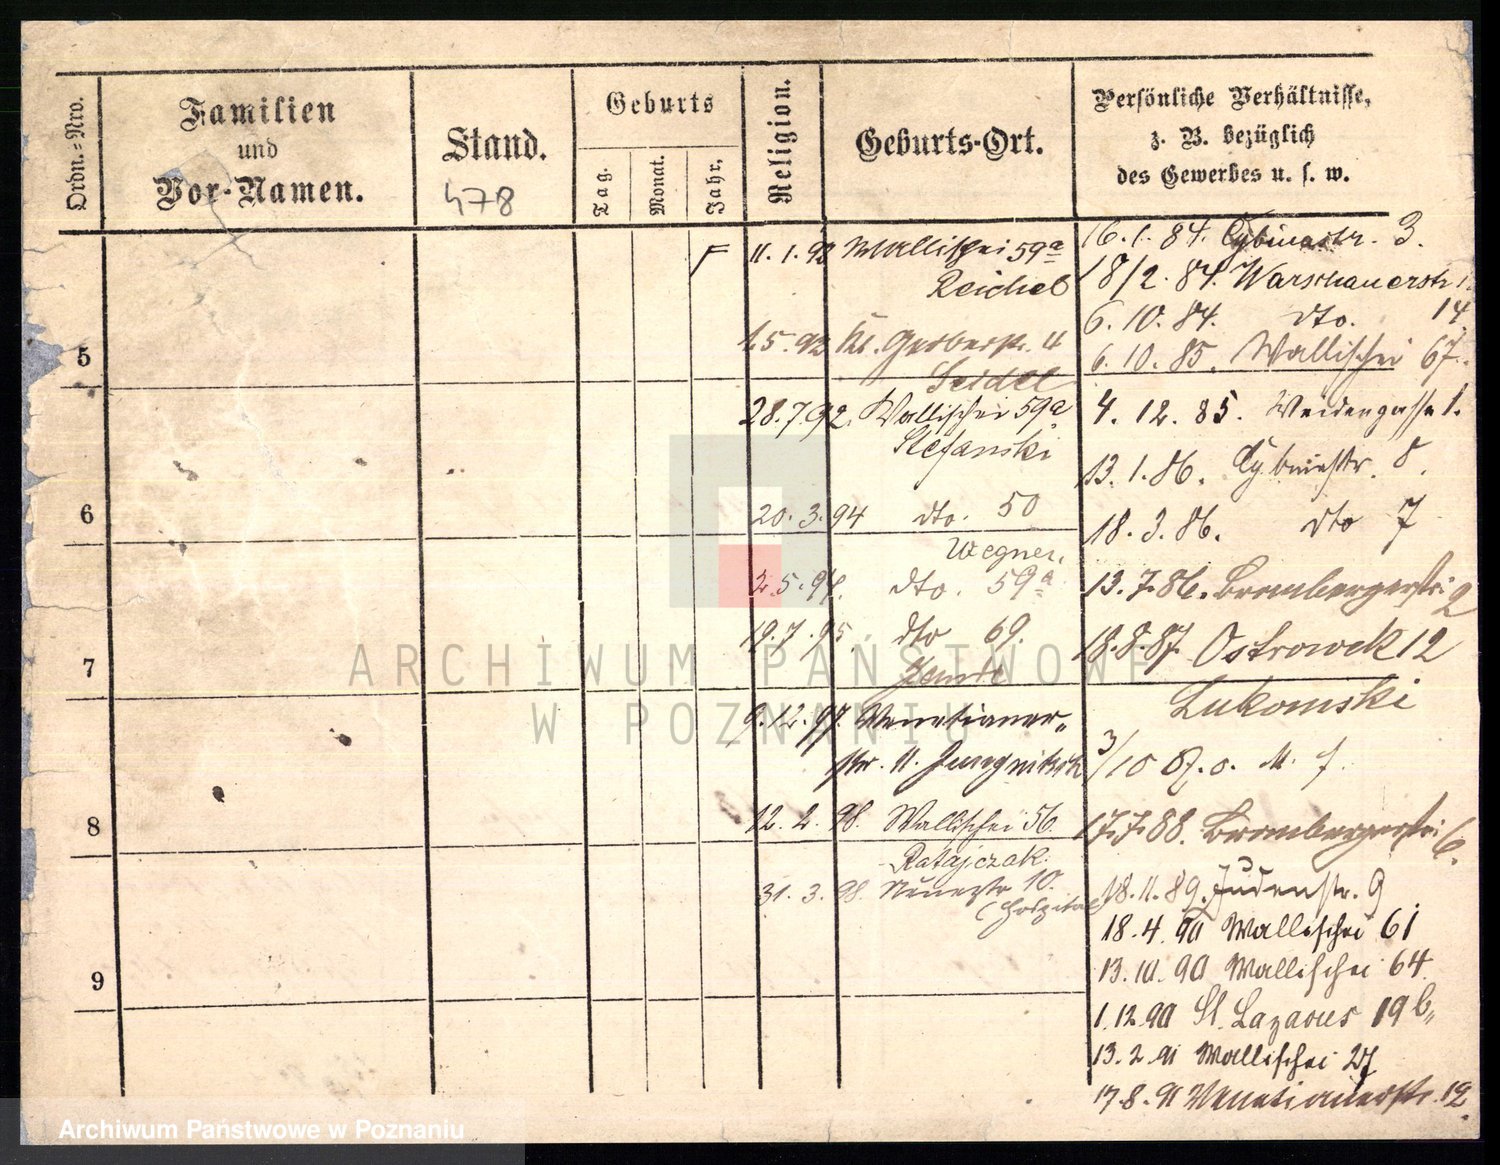 Ordn.-Nro.
Familien
und
Vor-Namen.
Stand.
478
Geburts
Tag.
Monat.
Jahr.
Religion.
Geburts-Ort.
Persönliche Verhältnisse,
z. B. bezüglich
des Gewerbes u. s. w.
5
6
7
8
9
11. 1. 92 Wallischei 59a
Reichel
1.5.92 Kl. Gerberstr. 4
Seidel
28.7.92. Wallischei 59a
Stefanski
20. 3. 94 dto. 50
Wegner.
2.5.94. dto. 59a
19.7.95 dto 69.
9.12.97. Venetianer-
str. 11. Jungnitsch
12. 2. 98. Wallischei 56.
Ratajczak.
31. 3. 98. Neuestr 10.
(Hospital)
16. 1. 84. Cybinastr. 3.
18/2. 84. Warschauerstr
6. 10. 84. dto. 14
6. 10. 85. Wallischei 67.
4. 12. 85. Weidengasse 1.
13. 1. 86. Cybinastr. 8.
18. 3. 86. dto 7
13. 7. 86. Brombergerstr. 2
18. 8. 87 Ostrowek 12
Lukomski
3/10 87. o. M. f.
17.7.88. Brombergerstr. 6.
18. 11. 89. Judenstr. 9
18. 4. 90 Wallischei 61
13. 10. 90 Wallischei 64
1. 12. 90 St. Lazarus 19 b,,
13. 2. 91 Wallischei 27
17. 8. 91 Venetianerstr. 12.
ARCHIWUM PAŃSTWOWE
W POZNANIU
Archiwum Państwowe w Poznaniu